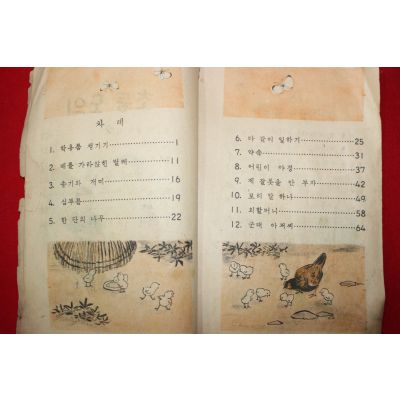 차 례
1. 학용품 챙기기 1
2. 배를 가라앉힌 벌레 11
3. 송기와 개미 16
4. 심부름 19
5. 한 단의 나무 22
6. 다 같이 일하기 25
7. 약속 31
8. 어린이 야경 37
9. 제 잘못을 안 부자 42
10. 보리 밭 하나 49
11. 외할머니 58
12. 군대 아저씨 64